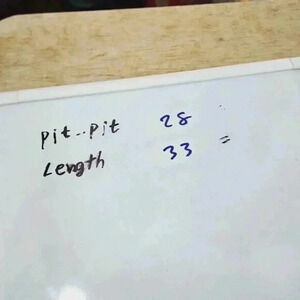 Pit..Pit 28
Length 33 =